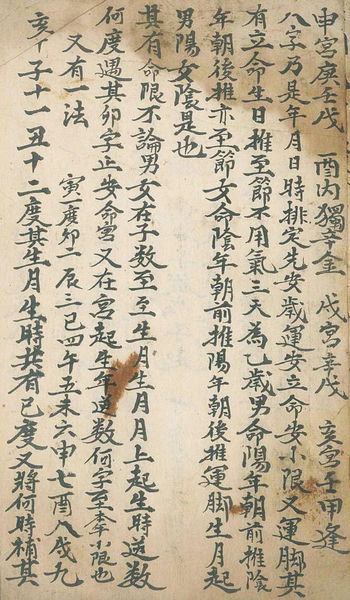 申宮庚壬戊 酉內獨辛金 戌宮辛戊 亥宮壬甲逢
八字乃是年月日時排定先安歲運安立命安小限又運脚其
有立命生日推至節不用氣三天為乙歲男命陽年朝前推陰
年朝後推亦至節女命陰年朝前推陽年朝後推運脚生月起
男陽女陰是也
其有命限不論男女在子数至至生月生月月上起生時逆数
何度遇其卯字止安命宮又在宮起生年逆数何字至本小限也
又有一法 寅一度卯二辰三巳四午五未六申七酉八戌九
亥十子十一丑十二度其生月生時共有已度又將何時補其